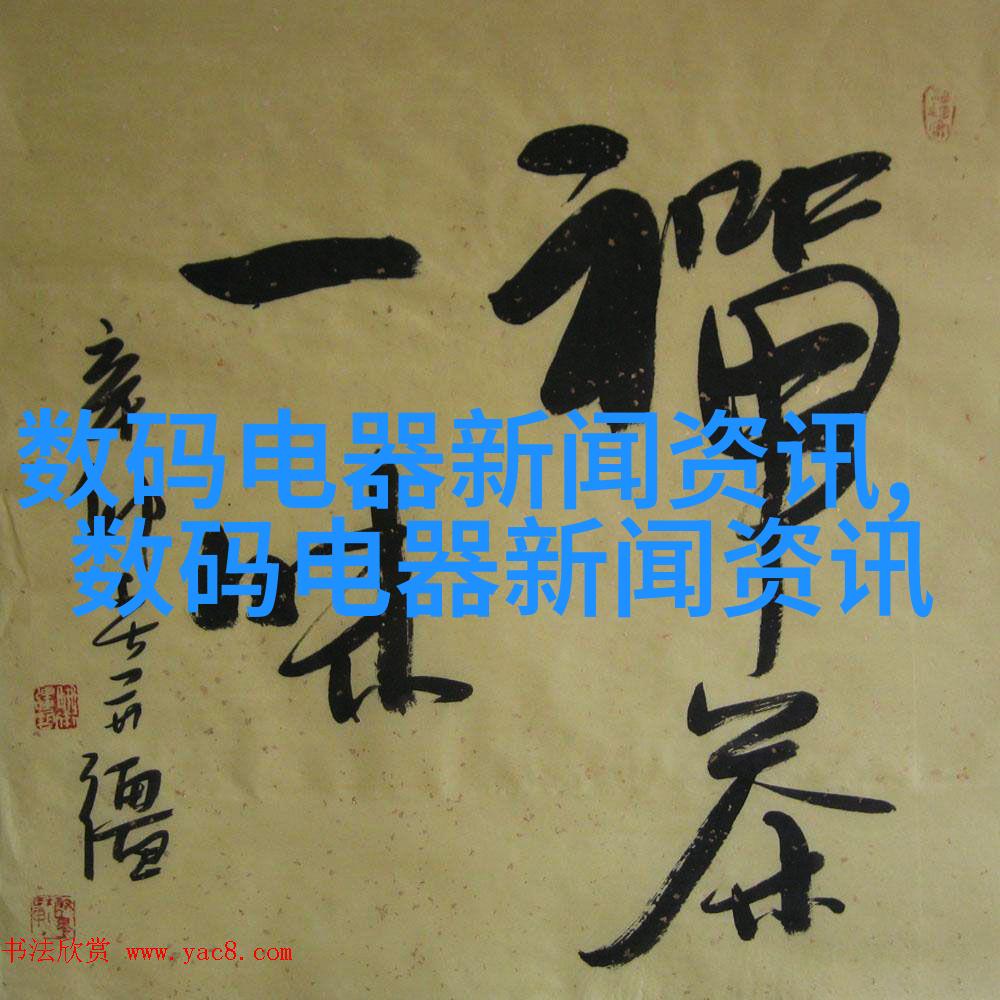 禪茶
一味
数码电器新闻资讯,
数码电器新闻资讯
书法欣赏 www.yac8.com